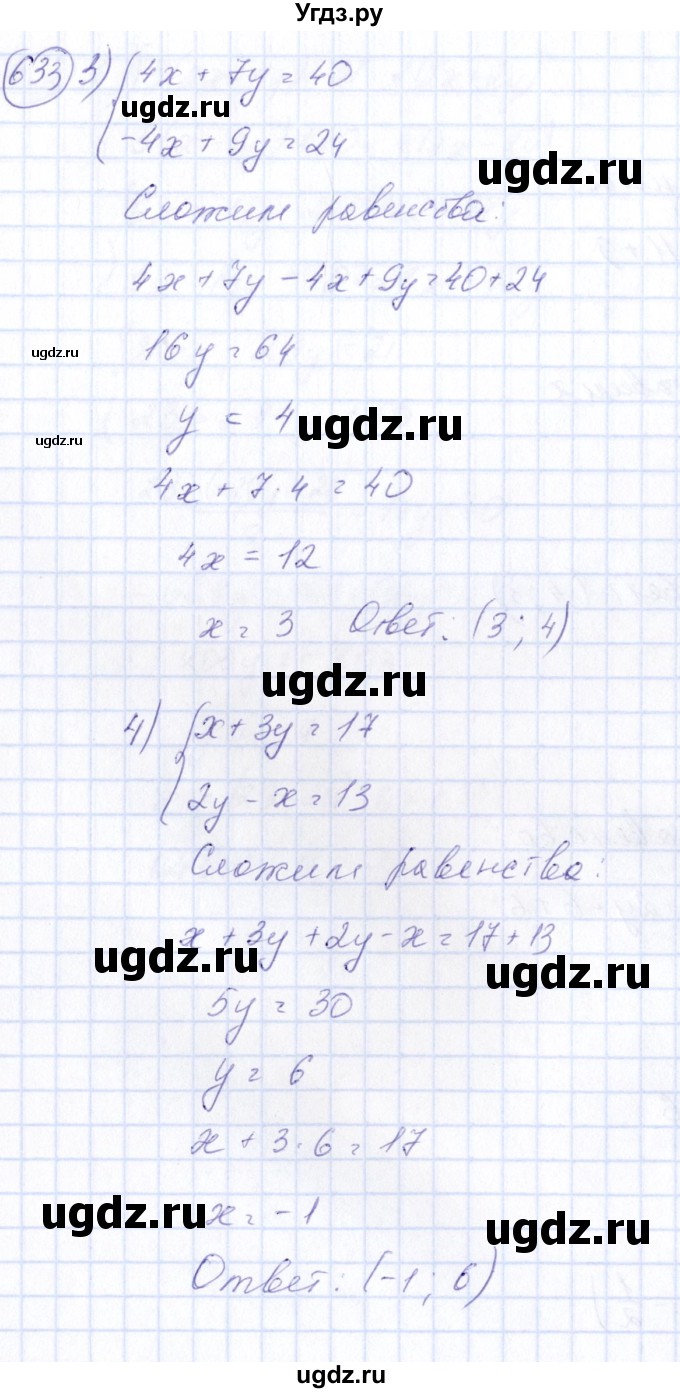 Угдз.ру
633 3) { 4x + 7y = 40
ugdz.ru
-4x + 9y = 24
ugdz.ru
Сложим равенства:
4x + 7y - 4x + 9y = 40 + 24
ugdz.ru 16y = 64
ugdz.ru y = 4 ugdz.ru
4x + 7 · 4 = 40
4x = 12
x = 3 Ответ: (3; 4)
ugdz.ru
4) { x + 3y = 17
2y - x = 13
Сложим равенства:
x + 3y + 2y - x = 17 + 13
ugdz.ru ugdz.ru
5y = 30
y = 6
x + 3 · 6 = 17
ugdz.ru x = -1 ugdz.ru
Ответ: (-1; 6)
ugdz.ru